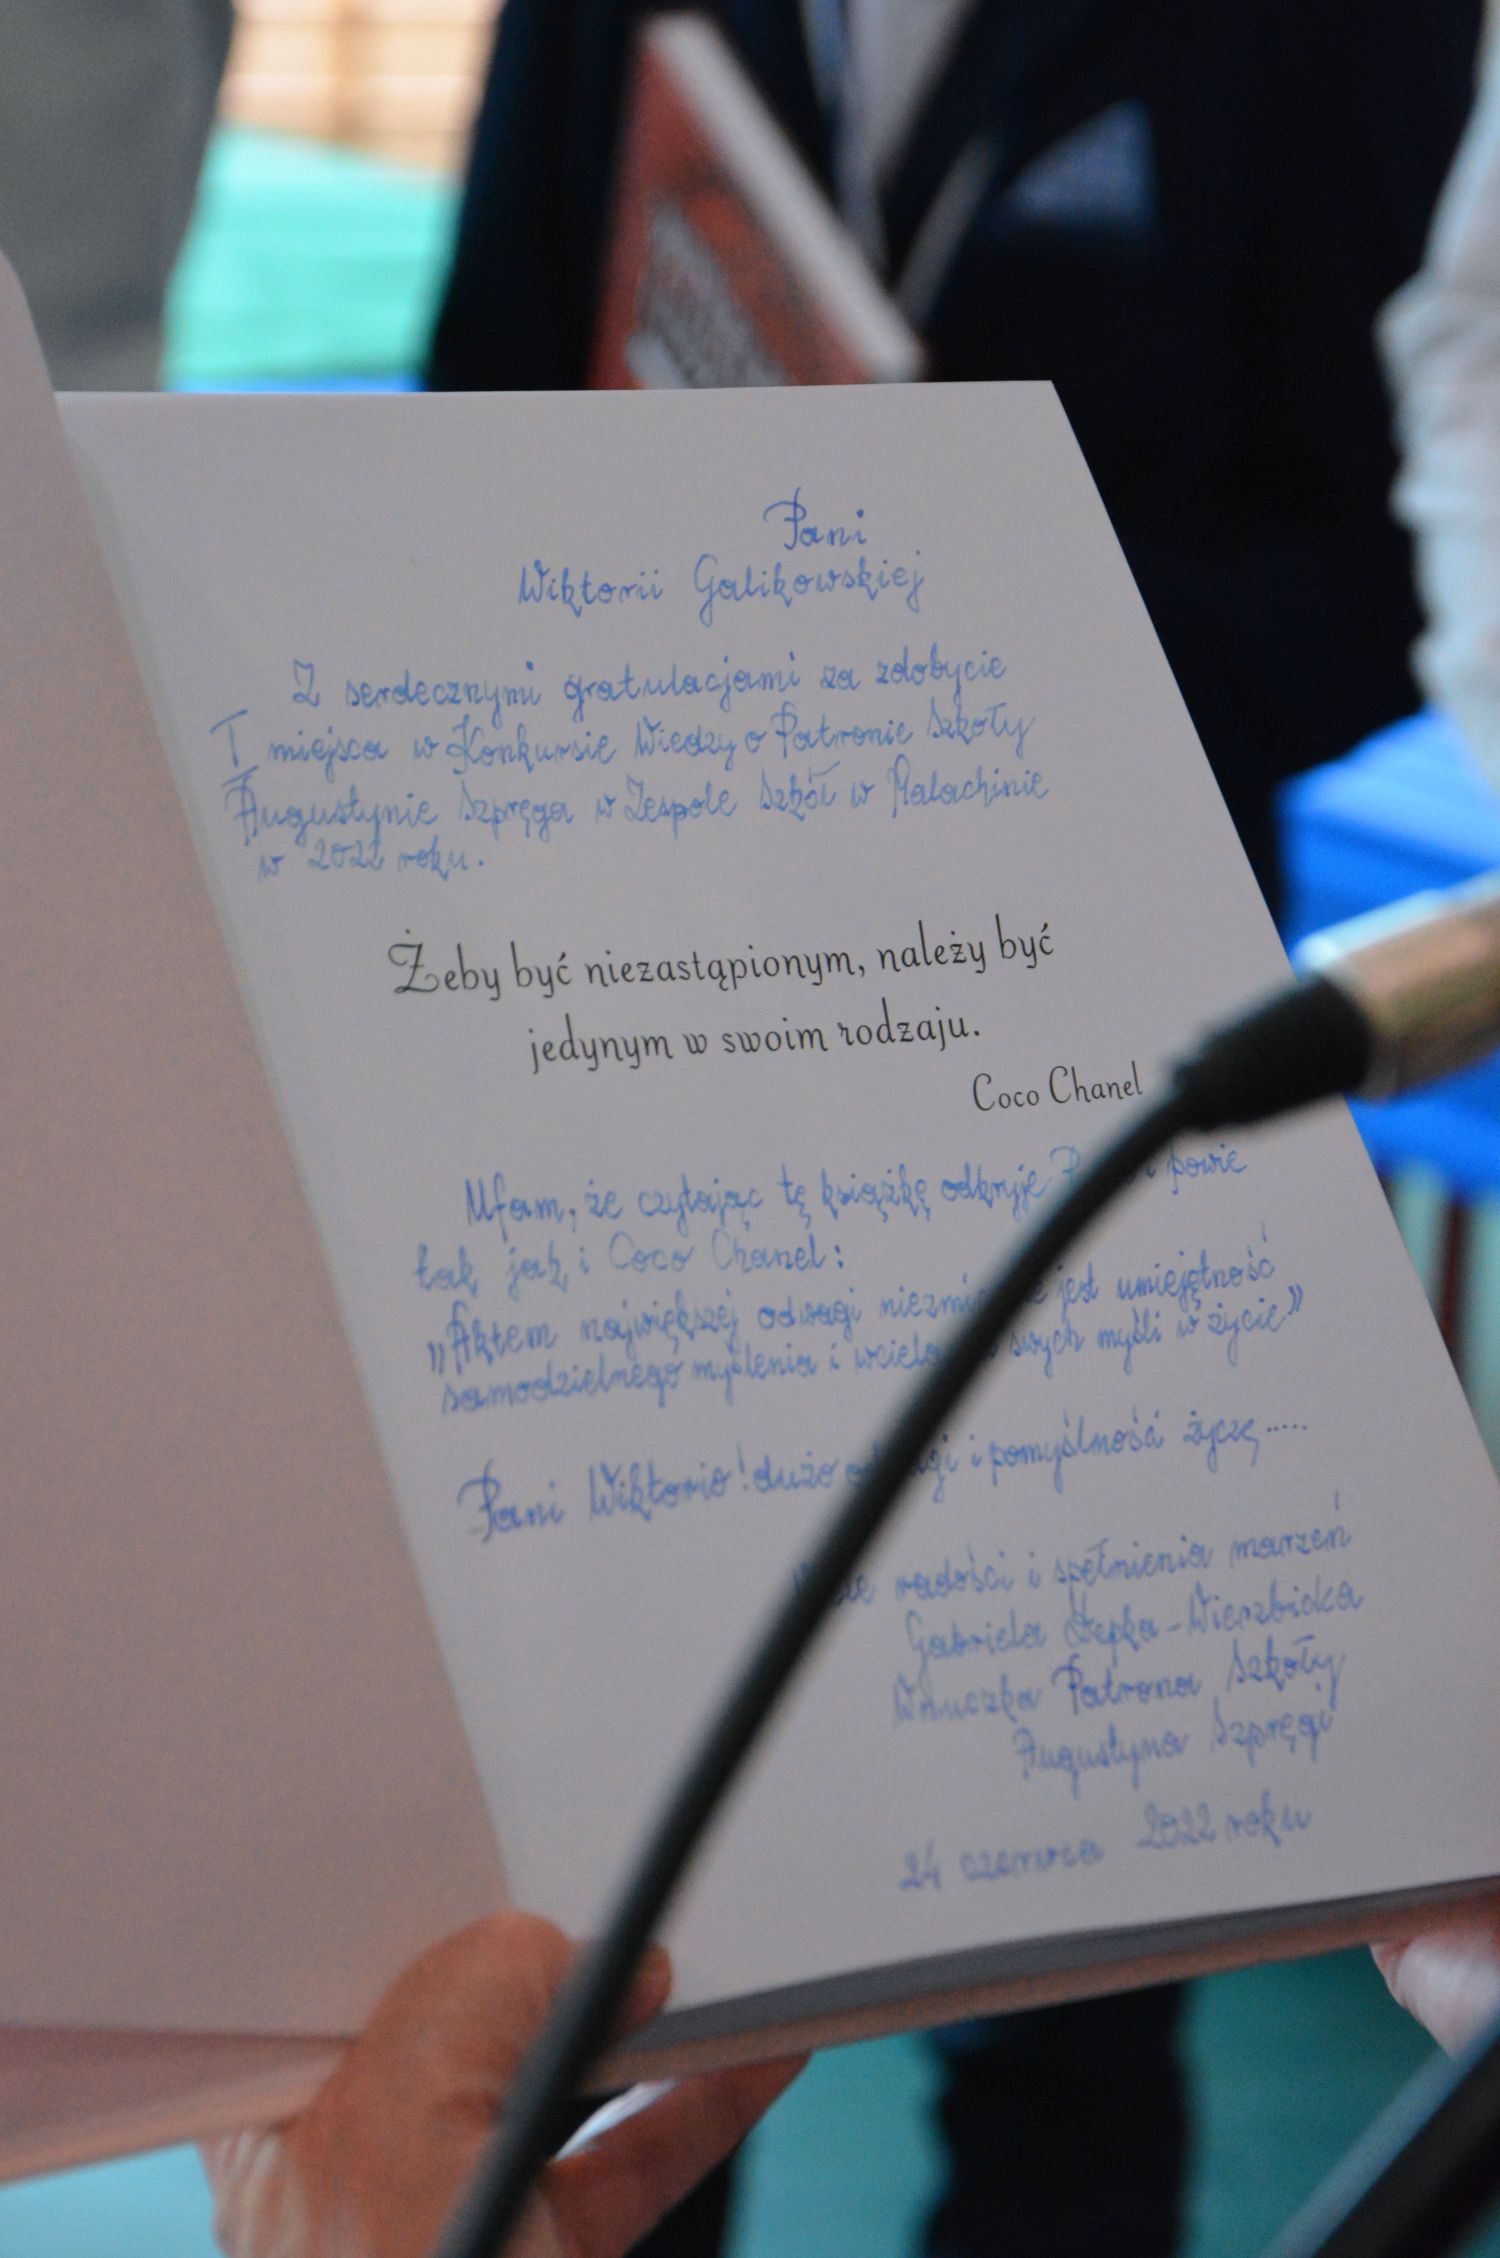 Pani
Wiktorii Galikowskiej
Z serdecznymi gratulacjami za zdobycie
I miejsca w Konkursie Wiedzy o Patronie Szkoły
Augustynie Szpręga w Zespole Szkół w Malachinie
w 2022 roku.
Żeby być niezastąpionym, należy być
jedynym w swoim rodzaju.
Coco Chanel
Ufam, że czytając tę książkę odkryje i powie
tak jak i Coco Chanel:
„Aktem największej odwagi jest umiejętność
samodzielnego myślenia i swych myśli w życie"
Pani Wiktorio! dużo i pomyślność życzę.....
radości i spełnienia marzeń
Gabriela -Wierzbicka
Wnuczka Patrona Szkoły
Augustyna Szpręgi
24 czerwca 2022 roku